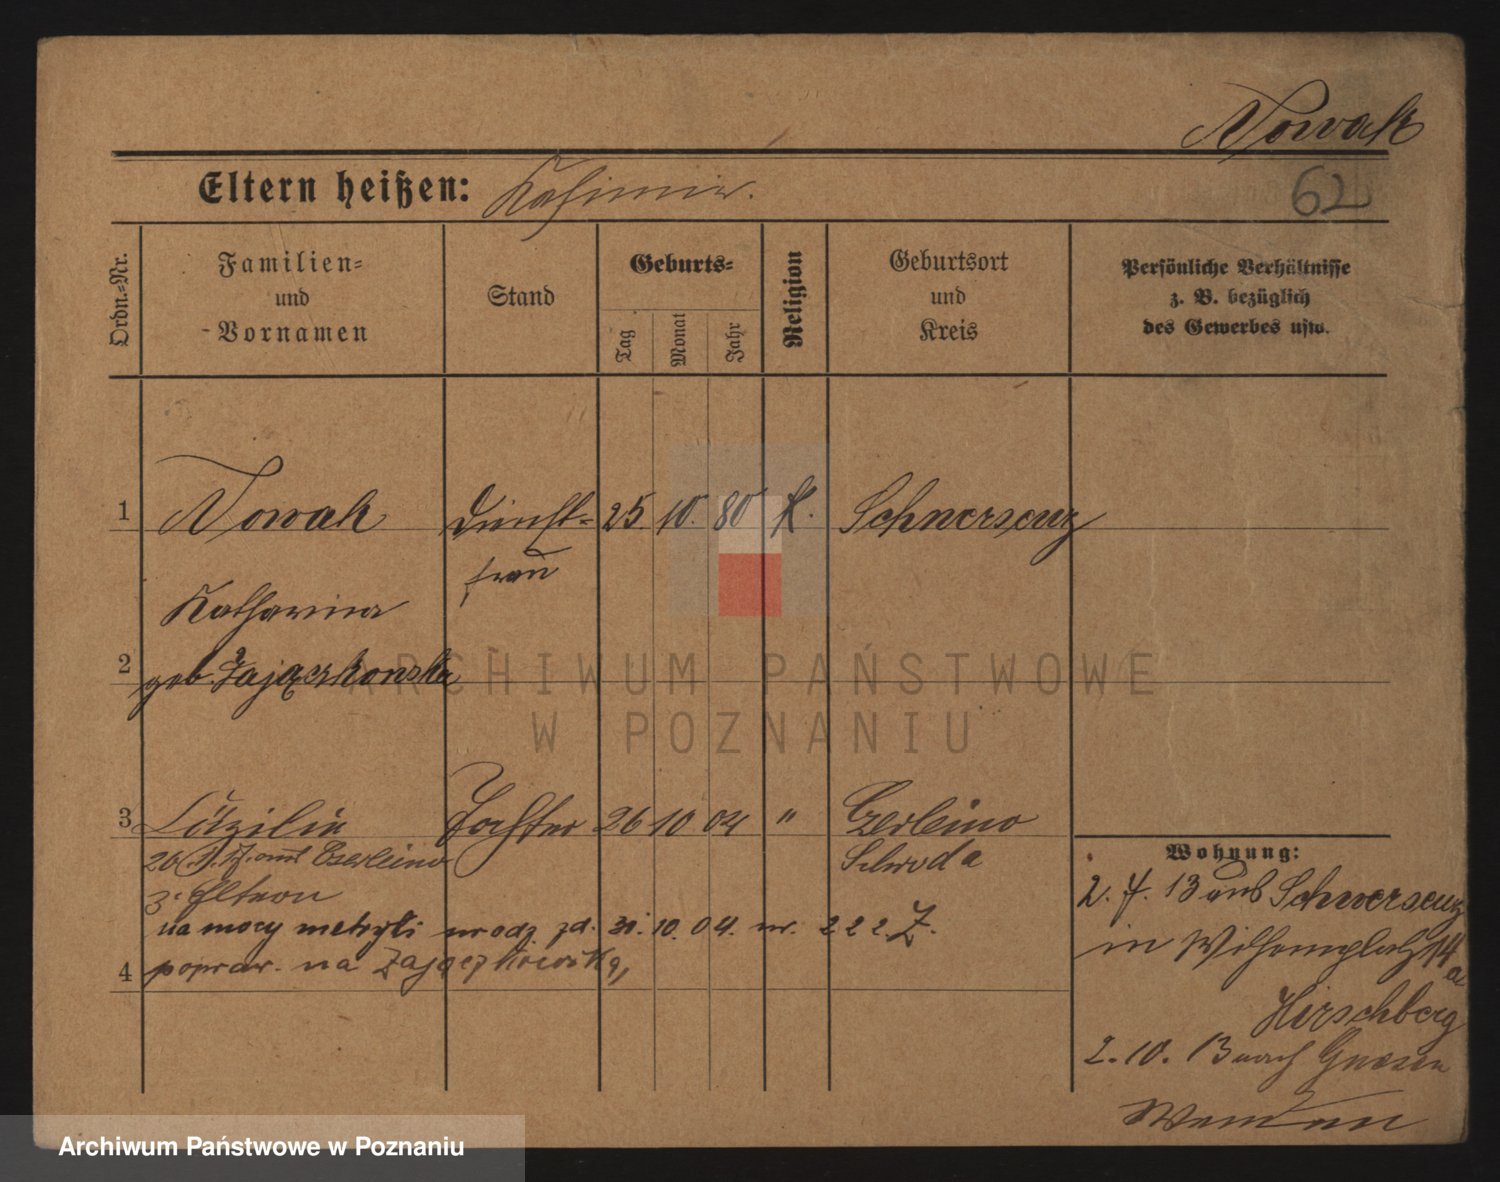 Nowak
Eltern heißen: Kasimir.
62
Ordn.=Nr.
Familien=
und
Vornamen
Stand
Geburts=
Tag
Monat
Jahr
Religion
Geburtsort
und
Kreis
Persönliche Verhältnisse
z. B. bezüglich
des Gewerbes usw.
1 Nowak Dienst= 25. 10. 80 k. Schwersenz
frau
Katharina
2 geb. Zajączkowska
3 Cäzilie Tochter 26 10 04 " Czerleino
Schroda
Czerleino
z. Eltern
na mocy metryki urodz. zd. 31. 10. 04. nr. 222. Z.
4 popraw. na Zajączkowska,
Wohnung:
2. 4. 13 aus Schwersenz
in Wilhemplatz 14
a
Hirschberg
2. 10. 13 nach Gnesen
ARCHIWUM PAŃSTWOWE
W POZNANIU
Archiwum Państwowe w Poznaniu